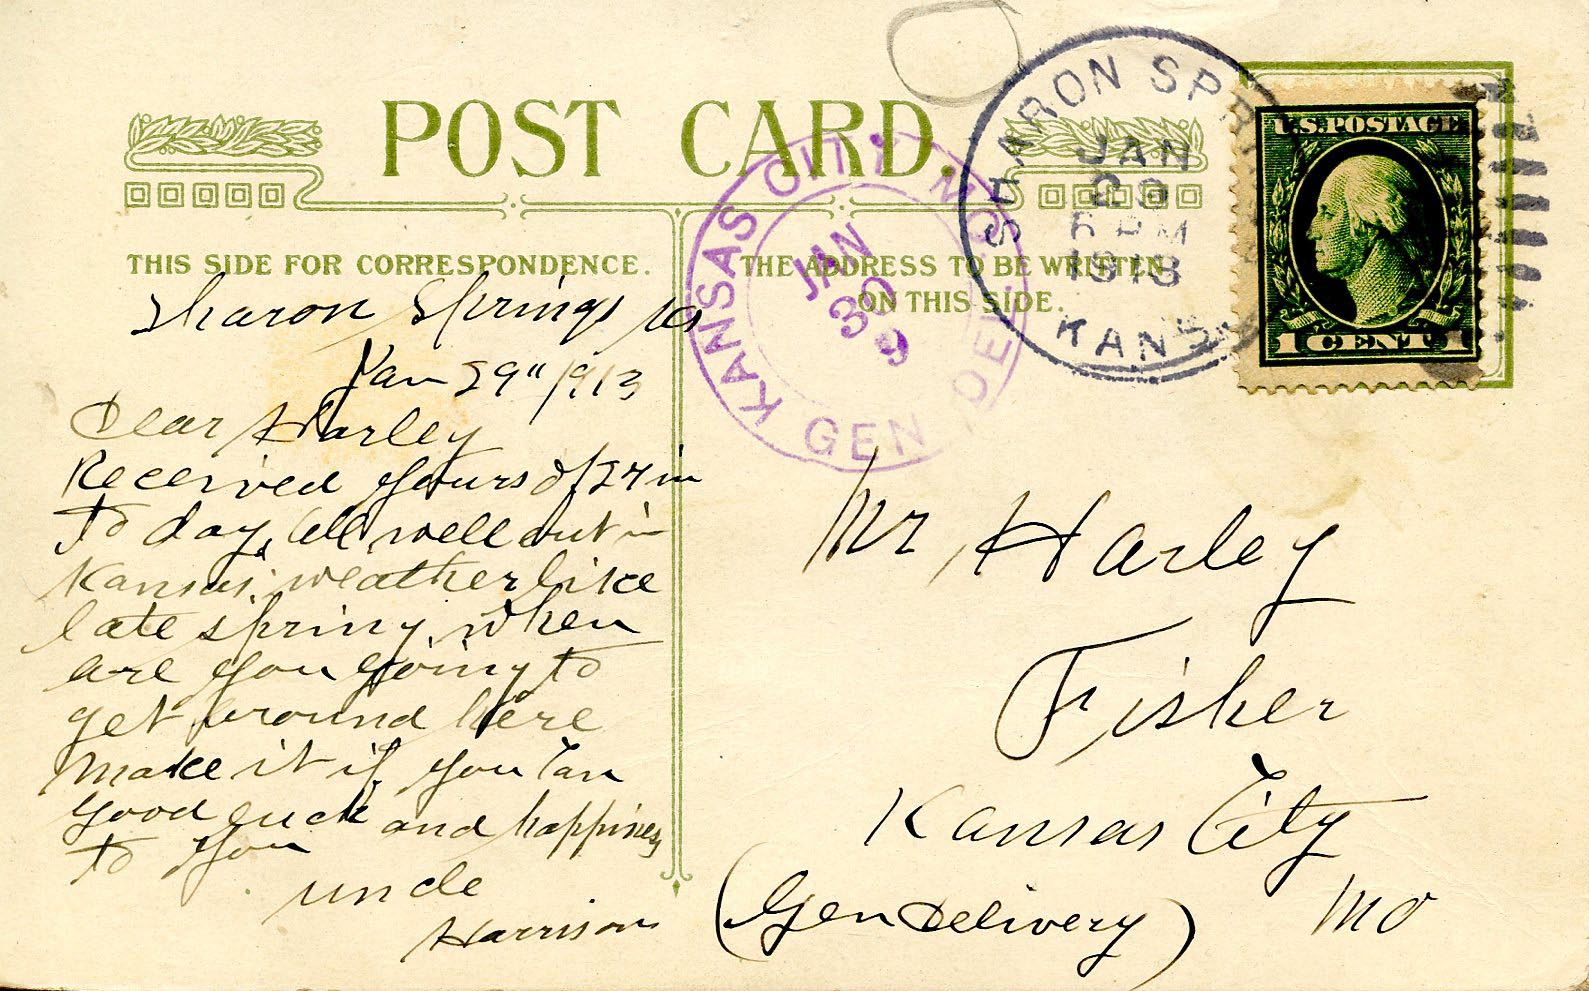 POST CARD.
THIS SIDE FOR CORRESPONDENCE.
THE ADDRESS TO BE WRITTEN
ON THIS SIDE.
SHARON SPRI
JAN
29
PM
1913
KANS
U.S.POSTAGE
1 CENT 1
KANSAS CITY, MO.
GEN DEL
JAN
30
9
Sharon Springs Ks
Jan 29" 1913
Dear Harley
Received yours of 27 in
to day, all well out in
Kansas, weather like
late spring, when
are you going to
get around here
Make it if you can
good luck and happiness
to you
uncle
Harrison
Mr Harley
Fisher
Kansas City
Mo
(Gen Delivery)